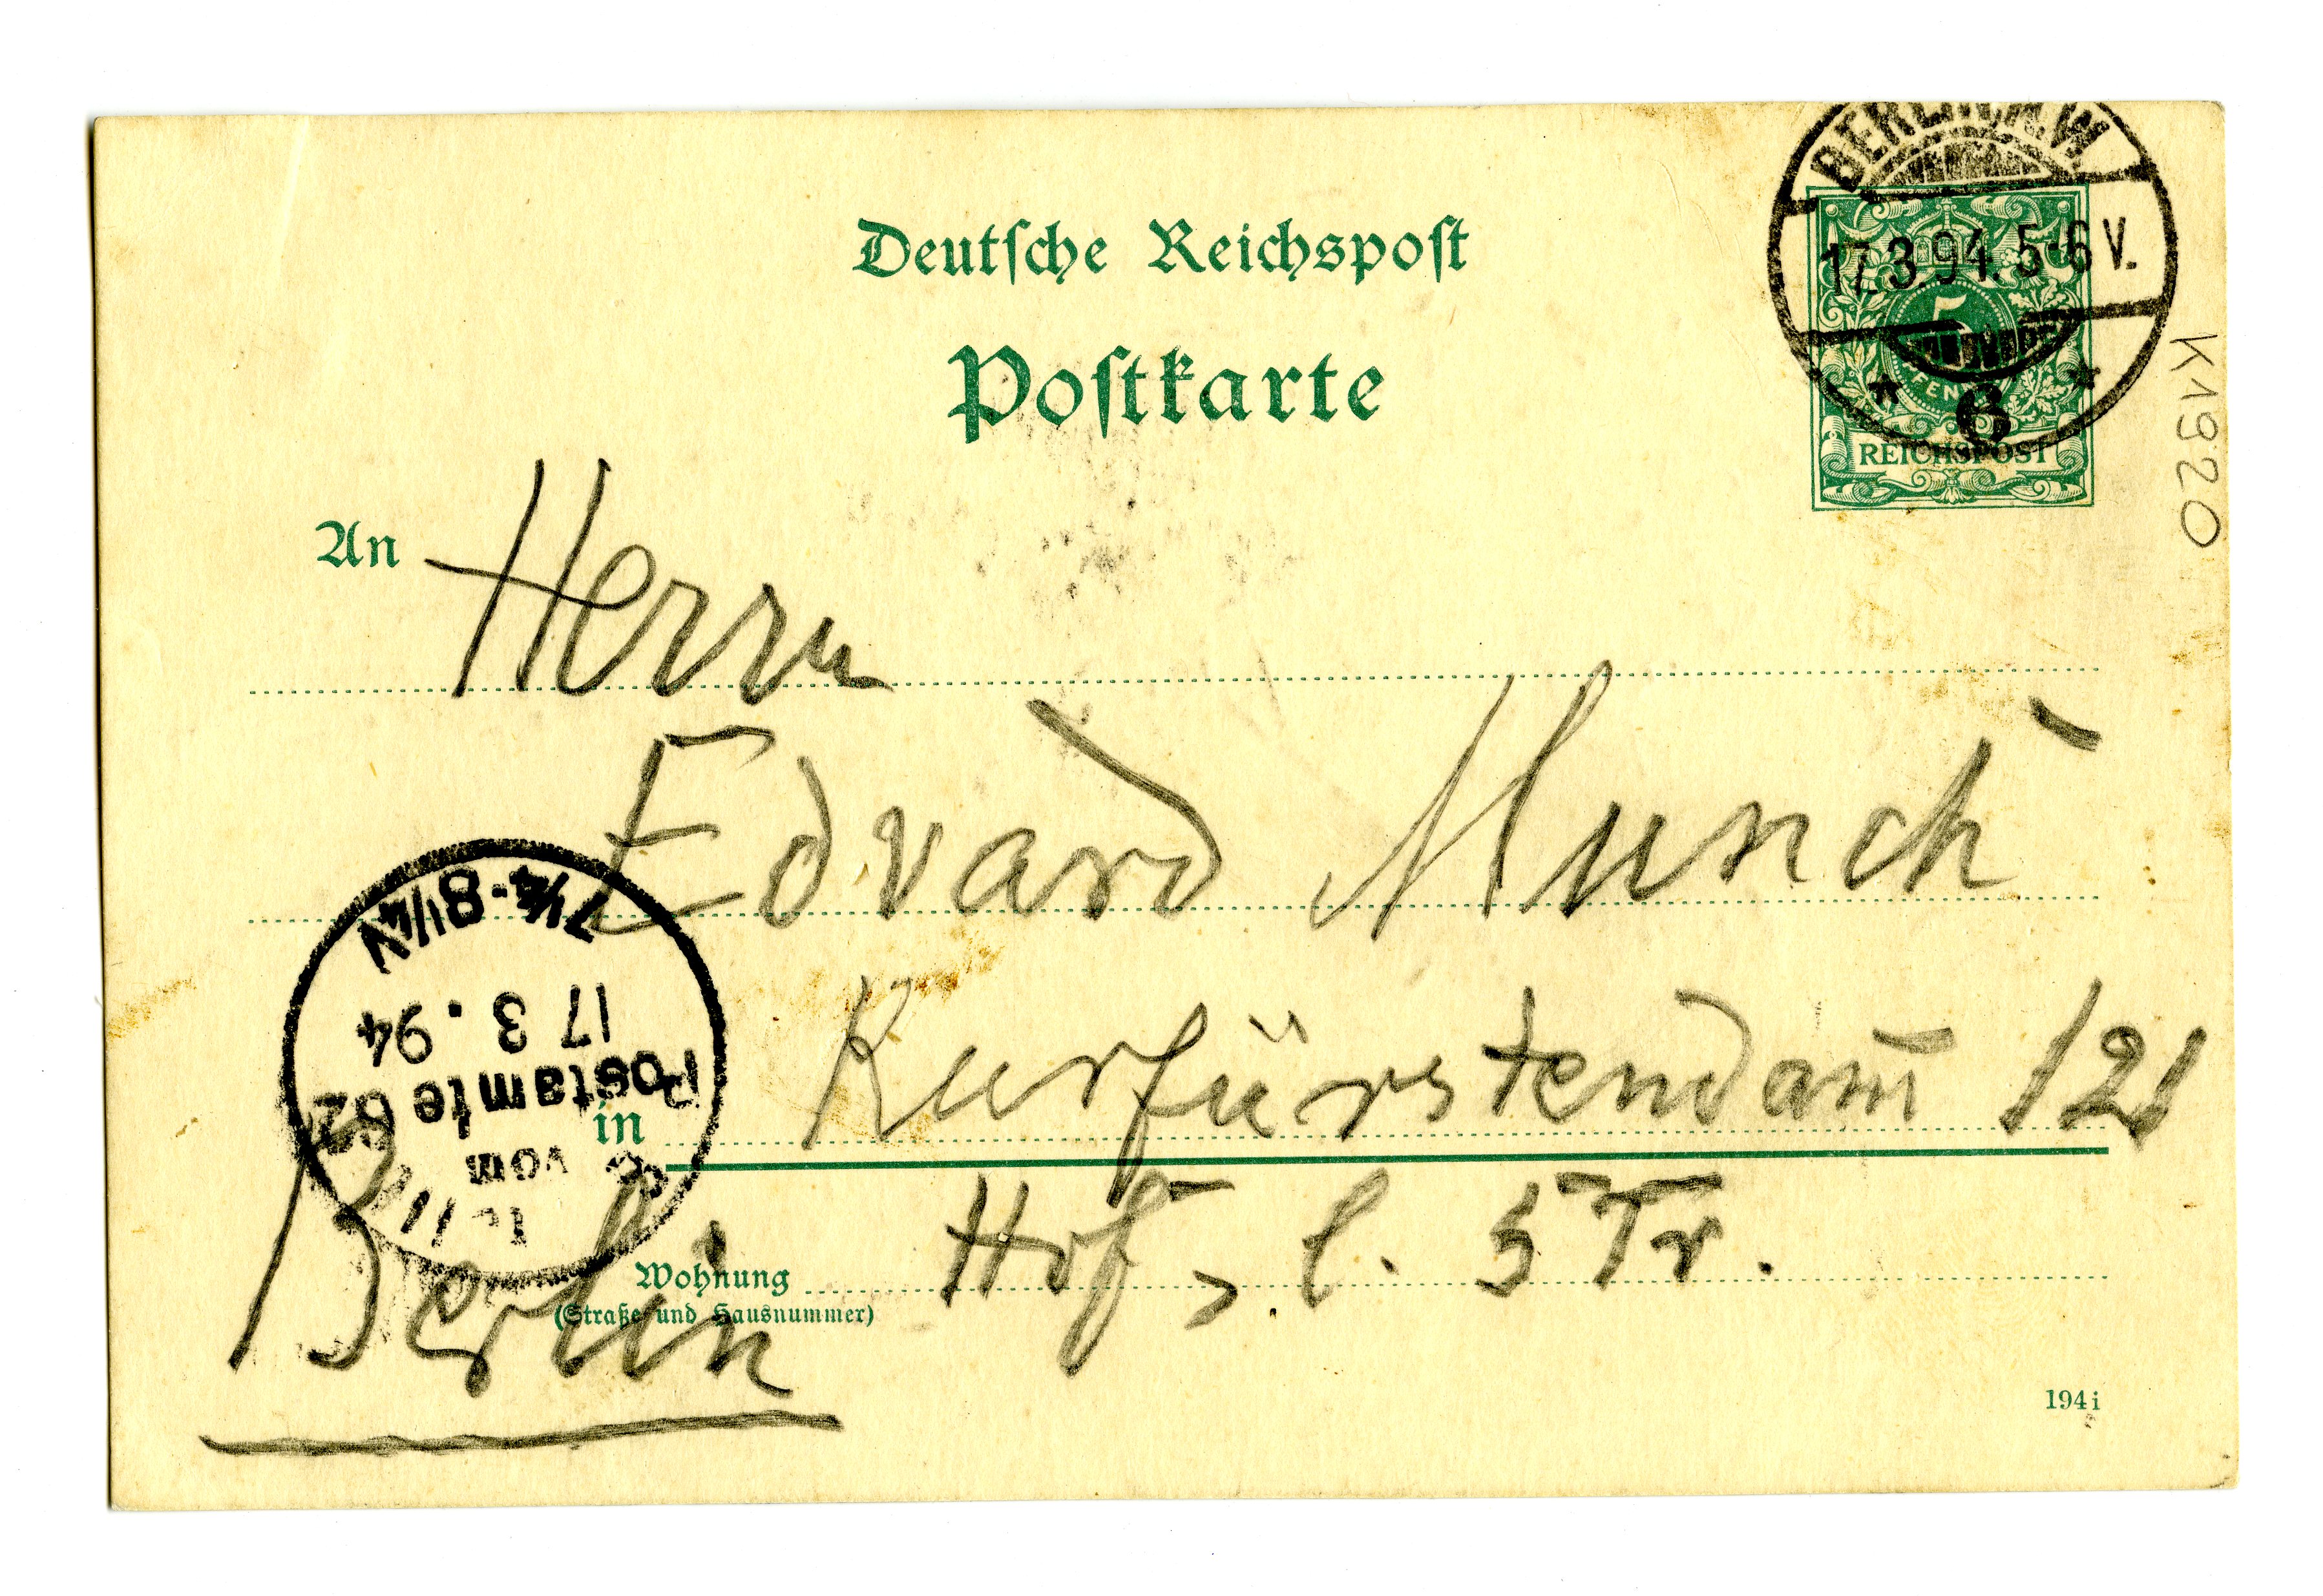 Deutſche Reichspoſt
Poſtkarte
BERLIN N.W.
17.3.94. 5-6 V.
* 6 *
5
REICHSPOST
K1920
An Herrn
Edvard Munch
7¼-8¼ V
17 3. 94
Postamte 62
vom
in Kurfürstendam̅ 121
Wohnung Hof, l. 5 Tr.
(Straße und Hausnummer)
Berlin
194 i